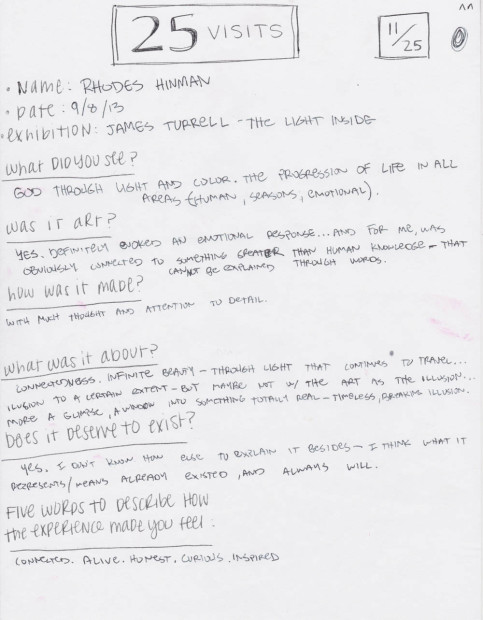 25 VISITS
11/25
• Name: RHODES HINMAN
• Date: 9/8/13
• exhibition: JAMES TURRELL - THE LIGHT INSIDE
What DID YOU see?
GOD THROUGH LIGHT AND COLOR. THE PROGRESSION OF LIFE IN ALL
AREAS (HUMAN, SEASONS, EMOTIONAL).
Was IT ART?
YES. DEFINITELY EVOKED AN EMOTIONAL RESPONSE... AND FOR ME, WAS
OBVIOUSLY CONNECTED TO SOMETHING GREATER THAN HUMAN KNOWLEDGE - THAT
CANNOT BE EXPLAINED THROUGH WORDS.
how was it made?
WITH MUCH THOUGHT AND ATTENTION TO DETAIL.
What was it about?
CONNECTEDNESS. INFINITE BEAUTY - THROUGH LIGHT THAT CONTINUES TO TRAVEL...
ILLUSION TO A CERTAIN EXTENT - BUT MAYBE NOT W/ THE ART AS THE ILLUSION...
MORE A GLIMPSE, A WINDOW INTO SOMETHING TOTALLY REAL - TIMELESS, BREAKING ILLUSION.
Does it Deserve to exist?
YES. I DON'T KNOW HOW ELSE TO EXPLAIN IT BESIDES - I THINK WHAT IT
REPRESENTS/MEANS ALREADY EXISTED, AND ALWAYS WILL.
FIVE WORDS TO DESCRIBE HOW
the experience made you feel:
CONNECTED. ALIVE. HONEST. CURIOUS. INSPIRED